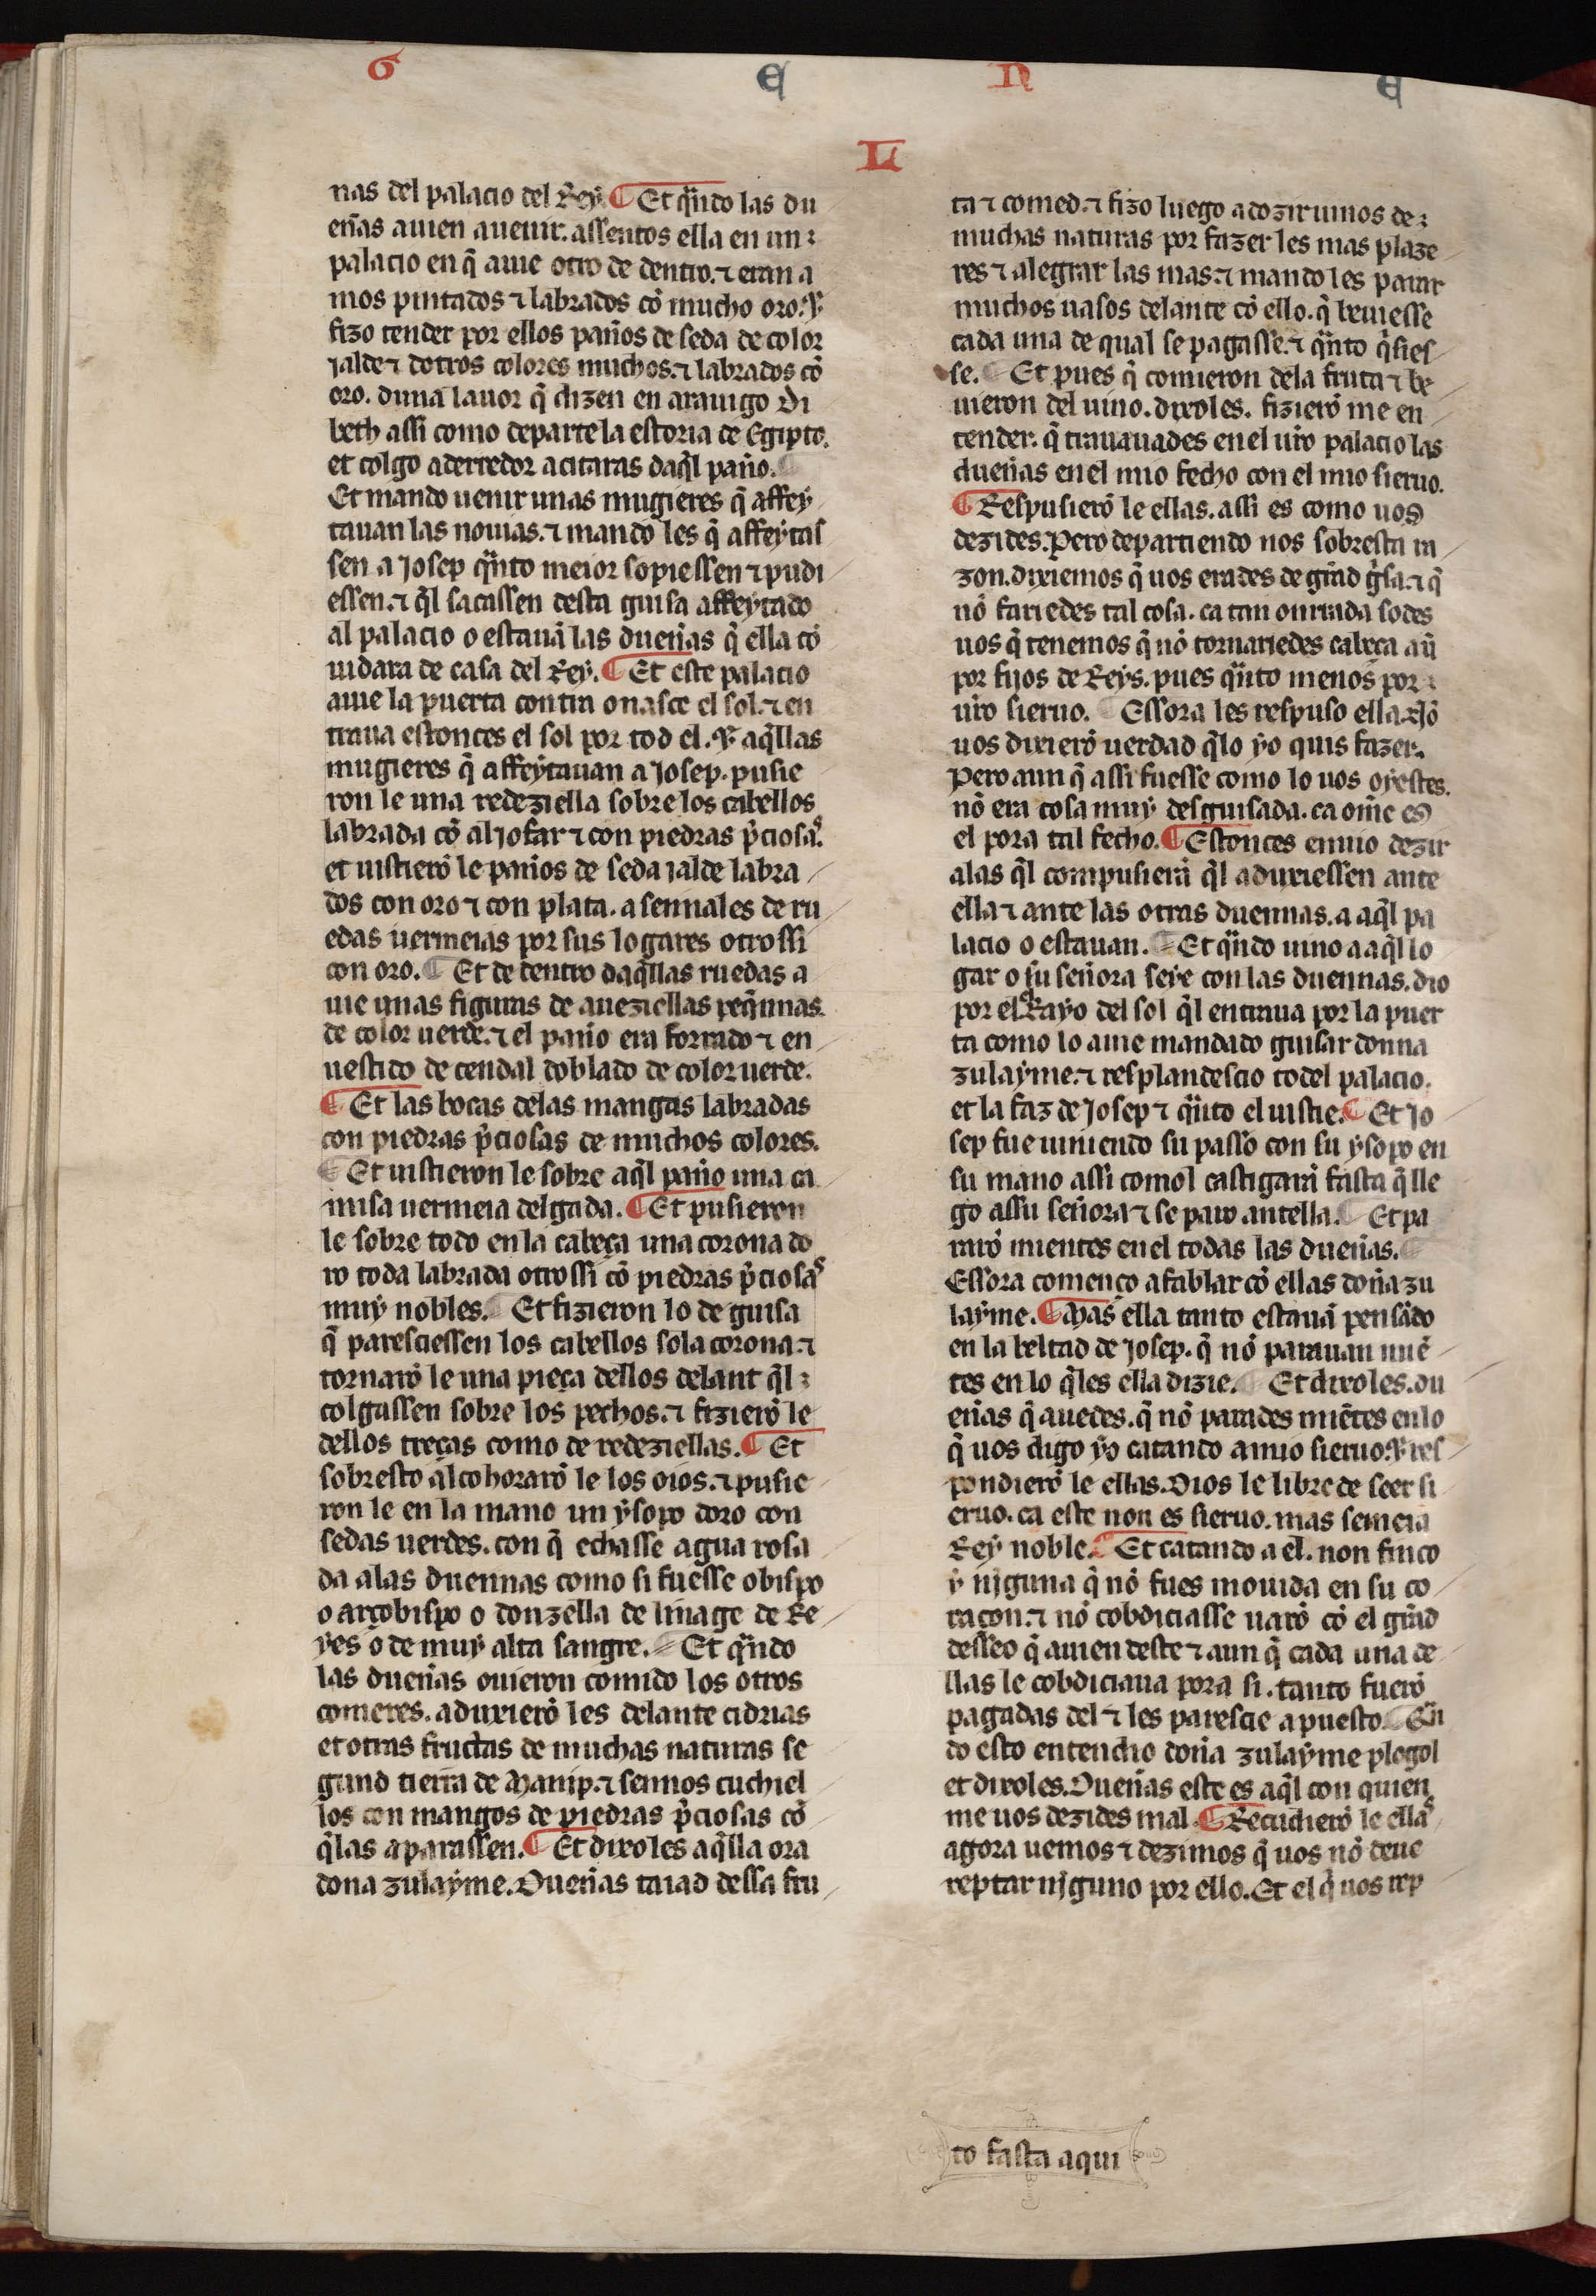 G E N E
L
nas del palacio del Rey. ¶ Et qñdo las du
eñas auien auenir. assentos ella en un
palacio en q̃ auie otro de dentro. ⁊ eran a
mos pintados ⁊ labrados cõ mucho oro. Y
fizo tender por ellos paños de seda de color
jalde ⁊ dotros colores muchos. ⁊ labrados cõ
oro. duna lauor q̃ dizen en arauigo Di
beth assi como departe la estoria de Egipto.
et colgo aderredor acitaras daq̃l paño. ¶
Et mando uenir unas mugieres q̃ affey
tauan las nouias. ⁊ mando les q̃ affeytas
sen a Josep qñto meior sopiessen ⁊ pudi
essen. ⁊ q̃l sacassen desta guisa affeytado
al palacio o estauã las dueñas q̃ ella cõ
uidara de casa del Rey. ¶ Et este palacio
auie la puerta contra o nasce el sol. ⁊ en
traua estonces el sol por tod el. Y aq̃llas
mugieres q̃ affeytauan a Josep. pusie
ron le una redeziella sobre los cabellos
labrada cõ aljofar ⁊ con piedras p̃ciosas.
et uistierõ le paños de seda jalde labra
dos con oro ⁊ con plata. a sennales de ru
edas uermeias por sus logares otrossi
con oro. ¶ Et de dentro daq̃llas ruedas a
uie unas figuras de aueziellas peq̃nnas.
de color uerde. ⁊ el paño era forrado ⁊ en
uestido de cendal doblado de color uerde.
¶ Et las bocas delas mangas labradas
con piedras p̃ciosas de muchos colores.
¶ Et uistieron le sobre aq̃l paño una ca
misa uermeia delgada. ¶ Et pusieron
le sobre todo en la cabeça una corona do
ro toda labrada otrossi cõ piedras p̃ciosas
muy nobles. ¶ Et fizieron lo de guisa
q̃ paresciessen los cabellos sola corona. ⁊
tornarõ le una pieça dellos delant q̃l
colgassen sobre los pechos. ⁊ fizierõ le
dellos treças como de redeziellas. ¶ Et
sobresto alcohorarõ le los oios. ⁊ pusie
ron le en la mano un ysopo doro con
sedas uerdes. con q̃ echasse agua rosa
da alas duennas como si fuesse obispo
o arçobispo o donzella de linage de Re
yes o de muy alta sangre. ¶ Et qñdo
las dueñas ouieron comido los otros
comeres. aduxierõ les delante cidrias
et otras fructas de muchas naturas se
gund tierra de Manip. ⁊ sennos cuchiel
los con mangos de piedras p̃ciosas cõ
q̃las aparassen. ¶ Et dixoles aq̃lla ora
dona zulayme. Dueñas taiad dessa fru
ta ⁊ comed. ⁊ fizo luego adozir uinos de
muchas naturas por fazer les mas plaze
res ⁊ alegrar las mas. ⁊ mando les parar
muchos uasos delante cõ ello. q̃ beuiesse
cada una de qual se pagasse. ⁊ qñto q̃sies
se. ¶ Et pues q̃ comieron dela fruta ⁊ be
uieron del uino. dixoles. fizierõ me en
tender. q̃ trauauades en el uro palacio las
dueñas en el mio fecho con el mio sieruo.
¶ Respusierõ le ellas. assi es como uos
dezides. Pero departiendo nos sobresta ra
zon. dixiemos q̃ uos erades de grãd g̃sa. ⁊ q̃
nõ fariedes tal cosa. ca tan onrrada sodes
uos q̃ tenemos q̃ nõ tornariedes cabeça aũ
por fijos de Reys. pues qñto menos por
uro sieruo. ¶ Essora les respuso ella.
uos dixierõ uerdad q̃lo yo quis fazer.
Pero aun q̃ assi fuesse como lo uos oyestes.
nõ era cosa muy desguisada. ca om̃e es
el pora tal fecho. ¶ Estonces enuio dezir
alas q̃l compusierã q̃l aduxiessen ante
ella ⁊ ante las otras duennas. a aq̃l pa
lacio o estauan. ¶ Et qñdo uino a aq̃l lo
gar o su señora seye con las duennas. dio
por el Rayo del sol q̃l entraua por la puer
ta como lo auie mandado guisar donna
zulayme. ⁊ resplandescio todel palacio.
et la faz de Josep ⁊ qñto el uistie. ¶ Et Jo
sep fue uiniendo su passo con su ysopo en
su mano assi comol castigarã fasta q̃ lle
go assu señora ⁊ se paro antella. ¶ Et pa
rarõ mientes en el todas las dueñas. ¶
Essora començo a fablar cõ ellas doña zu
layme. ¶ Mas ella tanto estauã pensãdo
en la beltad de Josep. q̃ nõ parauan miẽ
tes en lo q̃les ella dizie. ¶ Et dixoles. du
eñas q̃ auedes. q̃ nõ parades miẽtes en lo
q̃ uos digo yo catando a mio sieruo. Y res
pondierõ le ellas. Dios le libre de seer si
eruo. ca este non es sieruo. mas semeia
Rey noble. ¶ Et catando a el. non finco
y niguna q̃ nõ fues mouida en su co
raçon. ⁊ nõ cobdiciasse uarõ cõ el grãd
desseo q̃ auien deste ⁊ aun q̃ cada una de
llas le cobdiciaua pora si. tanto fuerõ
pagadas del ⁊ les parescie apuesto. ¶ Qñ
do esto entendio doña zulayme plogol
et dixoles. Dueñas este es aq̃l con quien
me uos dezides mal. ¶ Recudierõ le ellas
agora uemos ⁊ dezimos q̃ uos nõ deue
reptar niguno por ello. Et el q̃ uos rep
to fasta aqui